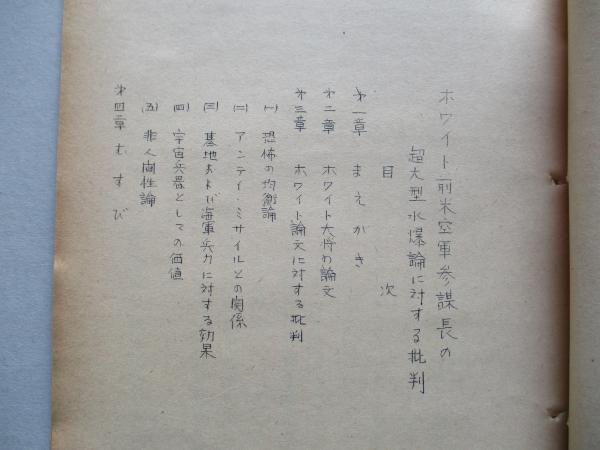 ホワイト前米空軍参謀長の
超大型水爆論に対する批判
目次
第一章 まえがき
第二章 ホワイト大将の論文
第三章 ホワイト論文に対する批判
(一) 恐怖の均衡論
(二) アンティ・ミサイルとの関係
(三) 基地および海軍兵力に対する効果
(四) 宇宙兵器としての価値
(五) 非人間性論
第四章 むすび